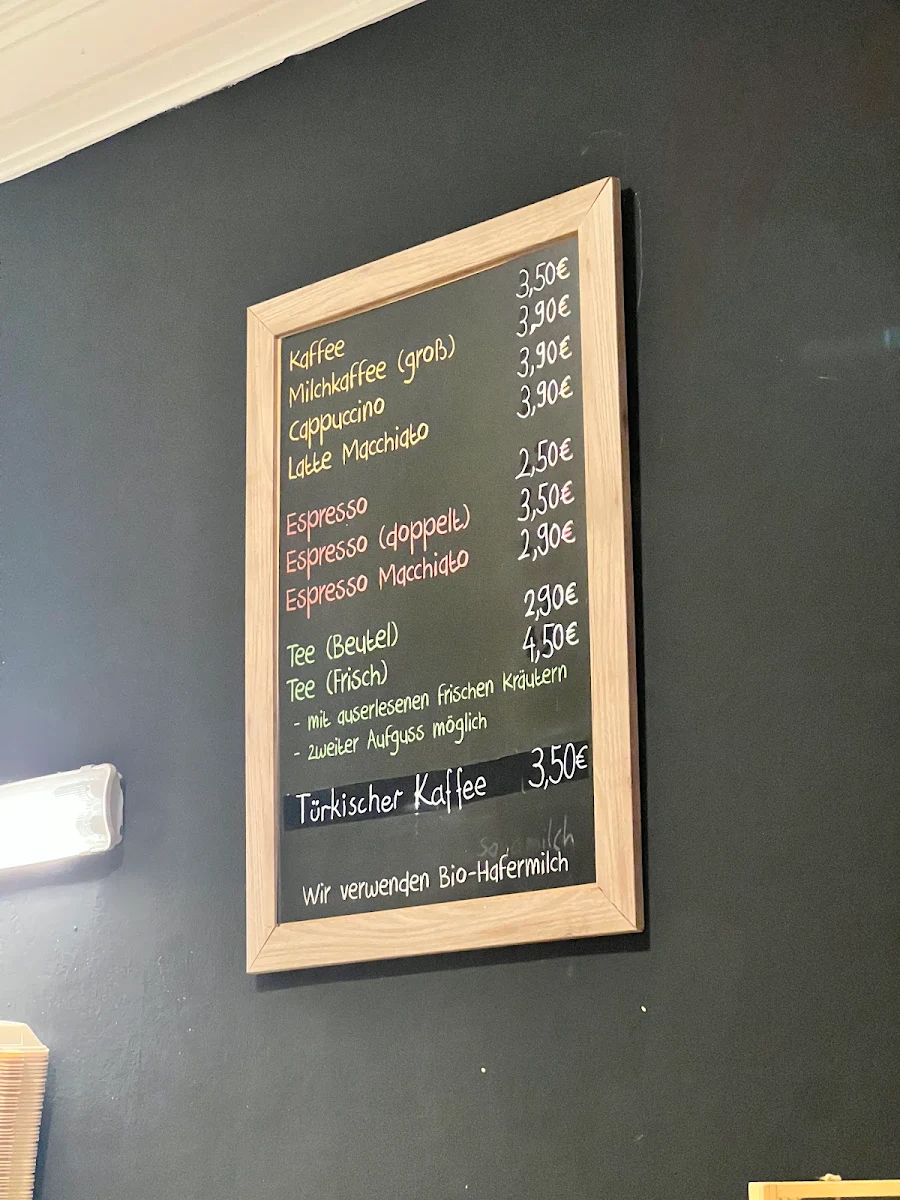 Kaffee 3,50€
Milchkaffee (groß) 3,90€
Cappuccino 3,90€
Latte Macchiato 3,90€
Espresso 2,50€
Espresso (doppelt) 3,50€
Espresso Macchiato 2,90€
Tee (Beutel) 2,90€
Tee (Frisch) 4,50€
- mit auserlesenen frischen Kräutern
- zweiter Aufguss möglich
Türkischer Kaffee 3,50€
Wir verwenden Bio-Hafermilch